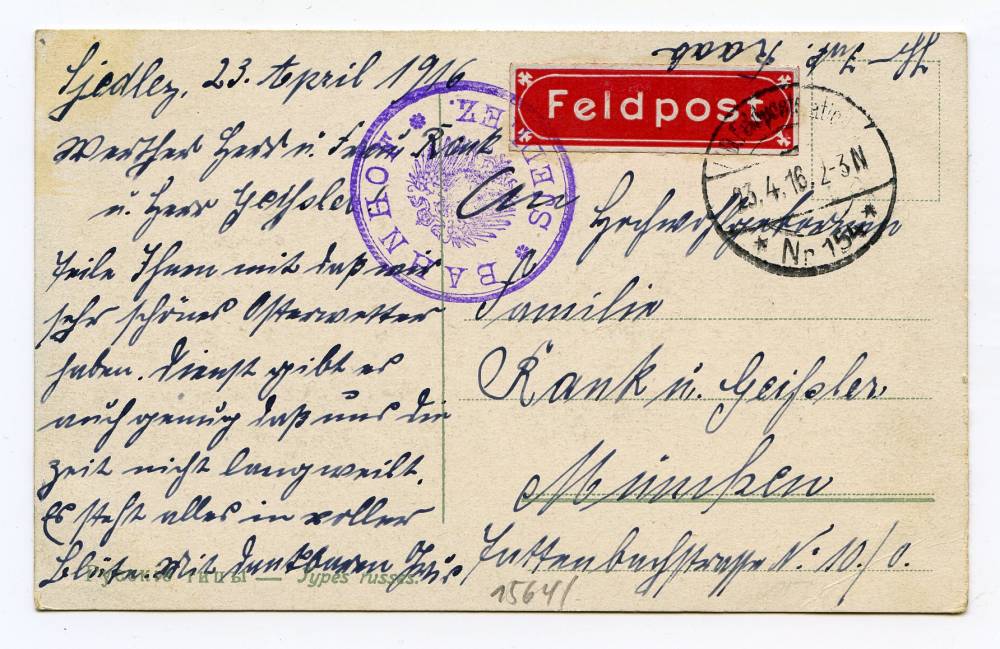 Sjedlez, 23. April 1916
Werther Herr u. Frau Rank
u. Herr Geißler
Teile Ihnen mit daß wir
sehr schönes Osterwetter
haben. Dienst gibt es
auch genug daß uns die
Zeit nicht langweilt.
Es steht alles in voller
Blüte. Mit dankbaren
типы — Types russes.
Ihr Raab
Feldpost
BAHNHOF * SJEDLEZ. *
23.4.16. 2-3 N
* Nr 154 *
An
Hochwohlgeboren
Familie
Rank u. Geißler
München
Tuttenbachstrasse N: 10/0.
1564/